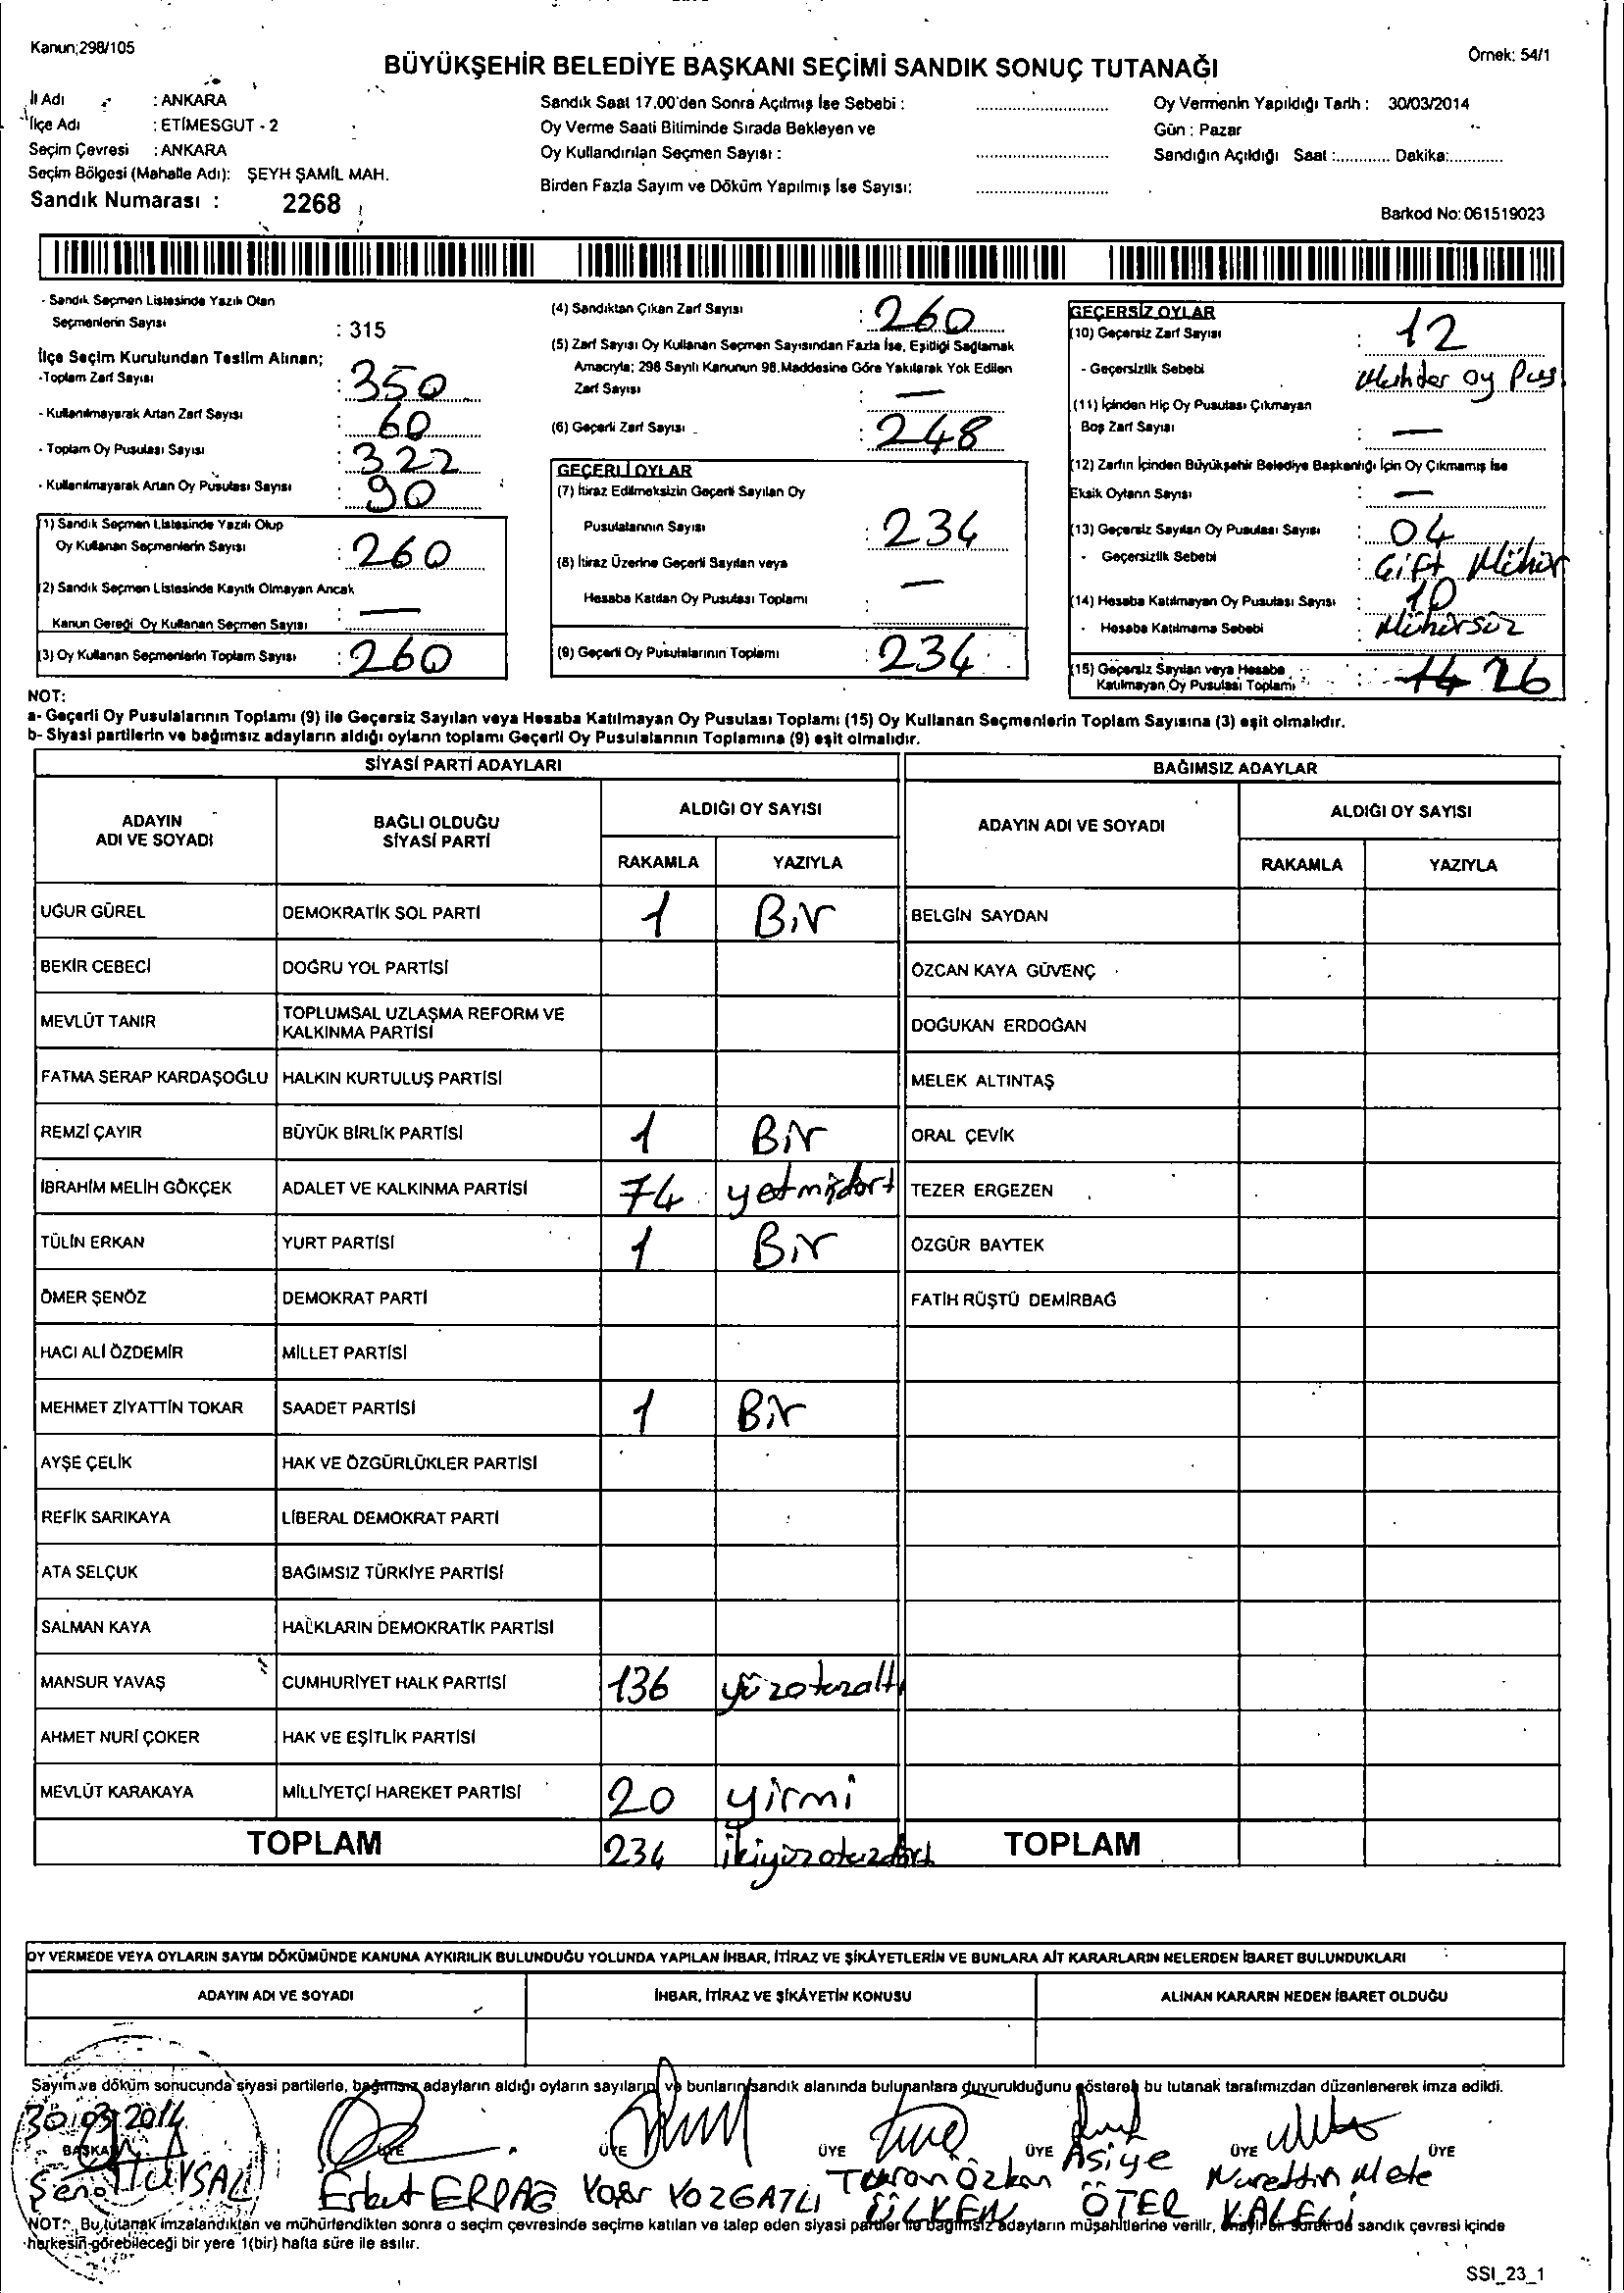 Kanun;298/105
Örnek: 54/1
BÜYÜKŞEHİR BELEDİYE BAŞKANI SEÇİMİ SANDIK SONUÇ TUTANAĞI
İl Adı : ANKARA
İlçe Adı : ETİMESGUT - 2
Seçim Çevresi : ANKARA
Seçim Bölgesi (Mahalle Adı): ŞEYH ŞAMİL MAH.
Sandık Numarası : 2268
Sandık Saat 17.00'den Sonra Açılmış İse Sebebi :
Oy Verme Saati Bitiminde Sırada Bekleyen ve
Oy Kullandırılan Seçmen Sayısı :
Birden Fazla Sayım ve Döküm Yapılmış İse Sayısı:
Oy Vermenin Yapıldığı Tarih : 30/03/2014
Gün : Pazar
Sandığın Açıldığı Saat :............ Dakika:............
Barkod No: 061519023
- Sandık Seçmen Listesinde Yazılı Olan
Seçmenlerin Sayısı : 315
İlçe Seçim Kurulundan Teslim Alınan;
-Toplam Zarf Sayısı : 350
- Kullanılmayarak Artan Zarf Sayısı : 60
- Toplam Oy Pusulası Sayısı : 322
- Kullanılmayarak Artan Oy Pusulası Sayısı : 90
(1) Sandık Seçmen Listesinde Yazılı Olup
Oy Kullanan Seçmenlerin Sayısı : 260
(2) Sandık Seçmen Listesinde Kayıtlı Olmayan Ancak
Kanun Gereği Oy Kullanan Seçmen Sayısı : —
(3) Oy Kullanan Seçmenlerin Toplam Sayısı : 260
(4) Sandıktan Çıkan Zarf Sayısı : 260
(5) Zarf Sayısı Oy Kullanan Seçmen Sayısından Fazla İse, Eşitliği Sağlamak
Amacıyla; 298 Sayılı Kanunun 98.Maddesine Göre Yakılarak Yok Edilen
Zarf Sayısı : —
(6) Geçerli Zarf Sayısı : 248
GEÇERLİ OYLAR
(7) İtiraz Edilmeksizin Geçerli Sayılan Oy
Pusulalarının Sayısı : 234
(8) İtiraz Üzerine Geçerli Sayılan veya
Hesaba Katılan Oy Pusulası Toplamı : —
(9) Geçerli Oy Pusulalarının Toplamı : 234
GEÇERSİZ OYLAR
(10) Geçersiz Zarf Sayısı : 12
- Geçersizlik Sebebi oy Pus
(11) İçinden Hiç Oy Pusulası Çıkmayan
Boş Zarf Sayısı : —
(12) Zarfın İçinden Büyükşehir Belediye Başkanlığı İçin Oy Çıkmamış İse
Eksik Oyların Sayısı : —
(13) Geçersiz Sayılan Oy Pusulası Sayısı : 04
- Geçersizlik Sebebi : Çift Mühür
(14) Hesaba Katılmayan Oy Pusulası Sayısı : 10
- Hesaba Katılmama Sebebi : Mühürsüz
(15) Geçersiz Sayılan veya Hesaba
Katılmayan Oy Pusulası Toplamı : 14 26
NOT:
a- Geçerli Oy Pusulalarının Toplamı (9) ile Geçersiz Sayılan veya Hesaba Katılmayan Oy Pusulası Toplamı (15) Oy Kullanan Seçmenlerin Toplam Sayısına (3) eşit olmalıdır.
b- Siyasi partilerin ve bağımsız adayların aldığı oyların toplamı Geçerli Oy Pusulalarının Toplamına (9) eşit olmalıdır.
SİYASİ PARTİ ADAYLARI
BAĞIMSIZ ADAYLAR
ADAYIN ADI VE SOYADI
BAĞLI OLDUĞU SİYASİ PARTİ
ALDIĞI OY SAYISI
RAKAMLA YAZIYLA
ADAYIN ADI VE SOYADI
ALDIĞI OY SAYISI
RAKAMLA YAZIYLA
UĞUR GÜREL DEMOKRATİK SOL PARTİ 1 Bir BELGİN SAYDAN
BEKİR CEBECİ DOĞRU YOL PARTİSİ ÖZCAN KAYA GÜVENÇ
MEVLÜT TANIR TOPLUMSAL UZLAŞMA REFORM VE KALKINMA PARTİSİ DOĞUKAN ERDOĞAN
FATMA SERAP KARDAŞOĞLU HALKIN KURTULUŞ PARTİSİ MELEK ALTINTAŞ
REMZİ ÇAYIR BÜYÜK BİRLİK PARTİSİ 1 Bir ORAL ÇEVİK
İBRAHİM MELİH GÖKÇEK ADALET VE KALKINMA PARTİSİ 74 yetmişdört TEZER ERGEZEN
TÜLİN ERKAN YURT PARTİSİ 1 Bir ÖZGÜR BAYTEK
ÖMER ŞENÖZ DEMOKRAT PARTİ FATİH RÜŞTÜ DEMİRBAĞ
HACI ALİ ÖZDEMİR MİLLET PARTİSİ
MEHMET ZİYATTİN TOKAR SAADET PARTİSİ 1 Bir
AYŞE ÇELİK HAK VE ÖZGÜRLÜKLER PARTİSİ
REFİK SARIKAYA LİBERAL DEMOKRAT PARTİ
ATA SELÇUK BAĞIMSIZ TÜRKİYE PARTİSİ
SALMAN KAYA HALKLARIN DEMOKRATİK PARTİSİ
MANSUR YAVAŞ CUMHURİYET HALK PARTİSİ 136 yüzotuzaltı
AHMET NURİ ÇOKER HAK VE EŞİTLİK PARTİSİ
MEVLÜT KARAKAYA MİLLİYETÇİ HAREKET PARTİSİ 20 yirmi
TOPLAM 234 ikiyüzotuzdört TOPLAM
OY VERMEDE VEYA OYLARIN SAYIM DÖKÜMÜNDE KANUNA AYKIRILIK BULUNDUĞU YOLUNDA YAPILAN İHBAR, İTİRAZ VE ŞİKÂYETLERİN VE BUNLARA AİT KARARLARIN NELERDEN İBARET BULUNDUKLARI
ADAYIN ADI VE SOYADI İHBAR, İTİRAZ VE ŞİKÂYETİN KONUSU ALINAN KARARIN NEDEN İBARET OLDUĞU
Sayım ve döküm sonucunda siyasi partilerle, bağımsız adayların aldığı oyların sayılarını ve bunların sandık alanında bulunanlara duyurulduğunu gösteren bu tutanak tarafımızdan düzenlenerek imza edildi.
30.03.2014
BAŞKAN ÜYE ÜYE ÜYE ÜYE ÜYE ÜYE
Şenol UYSAL Yaşar YOZGATLI Turan Özkan ÜLKEN Asiye ÖTER Nurettin Mete KALELİ
NOT: Bu tutanak imzalandıktan ve mühürlendikten sonra o seçim çevresinde seçime katılan ve talep eden siyasi partiler ile bağımsız adayların müşahitlerine verilir, onaylı bir sureti de sandık çevresi içinde
herkesin görebileceği bir yere 1(bir) hafta süre ile asılır.
SSI_23_1